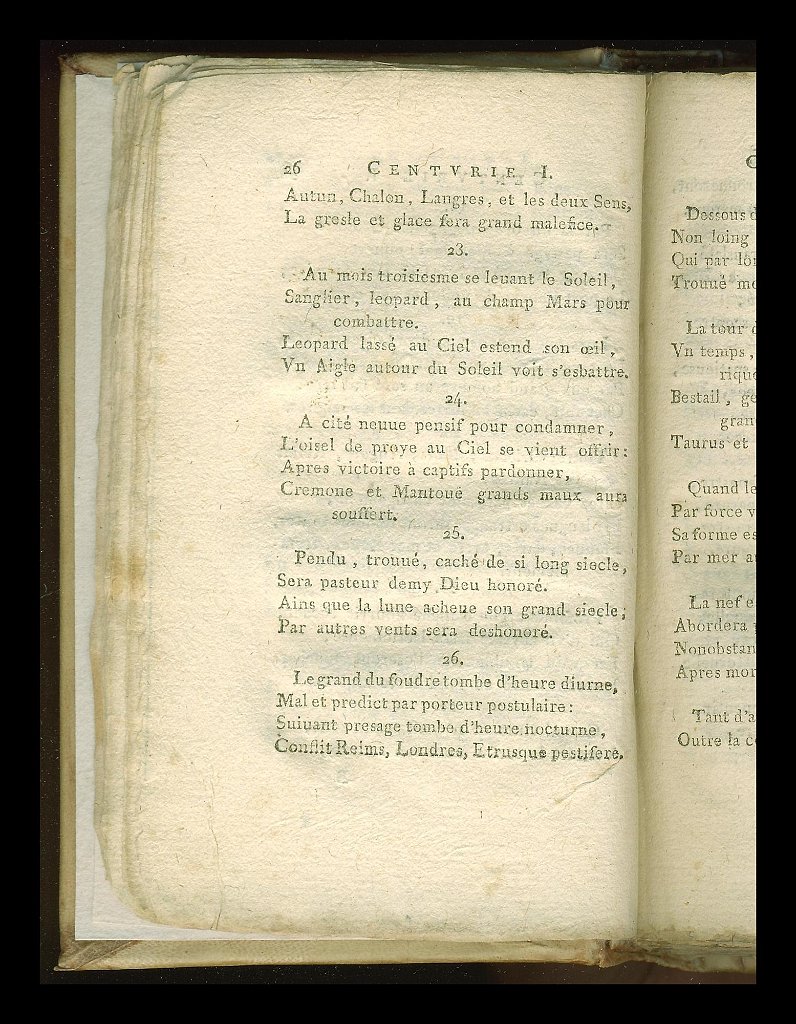 26 CENTVRIE I.
Autun, Chalon, Langres, et les deux Sens,
La gresle et glace fera grand malefice.
23.
Au mois troisiesme se leuant le Soleil,
Sanglier, leopard, au champ Mars pour
combattre.
Leopard lassé au Ciel estend son œil,
Vn Aigle autour du Soleil voit s'esbattre.
24.
A cité neuue pensif pour condamner,
L'oisel de proye au Ciel se vient offrir:
Apres victoire à captifs pardonner,
Cremone et Mantouë grands maux aura
souffert.
25.
Pendu, trouué, caché de si long siecle,
Sera pasteur demy Dieu honoré.
Ains que la lune acheue son grand siecle;
Par autres vents sera deshonoré.
26.
Le grand du foudre tombe d'heure diurne,
Mal et predict par porteur postulaire:
Suiuant presage tombe d'heure nocturne,
Conflit Reims, Londres, Etrusque pestifere.
Dessous
Non loing
Qui par
Trouué
La tour
Vn temps,
Bestail,
Taurus et
Quand
Par force
Sa forme
Par mer
La nef
Abordera
Nonobstan
Apres
Tant d'a
Outre la